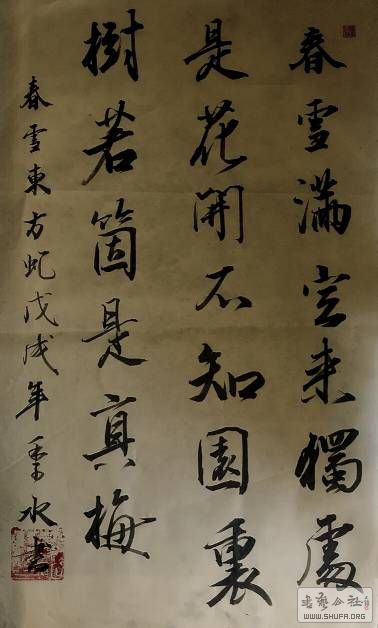 春雪滿空來獨處
是花開不知園裏
樹若箇是真梅
春雪東方虬戊戌年季水書
书艺公社
WWW.SHUFA.ORG